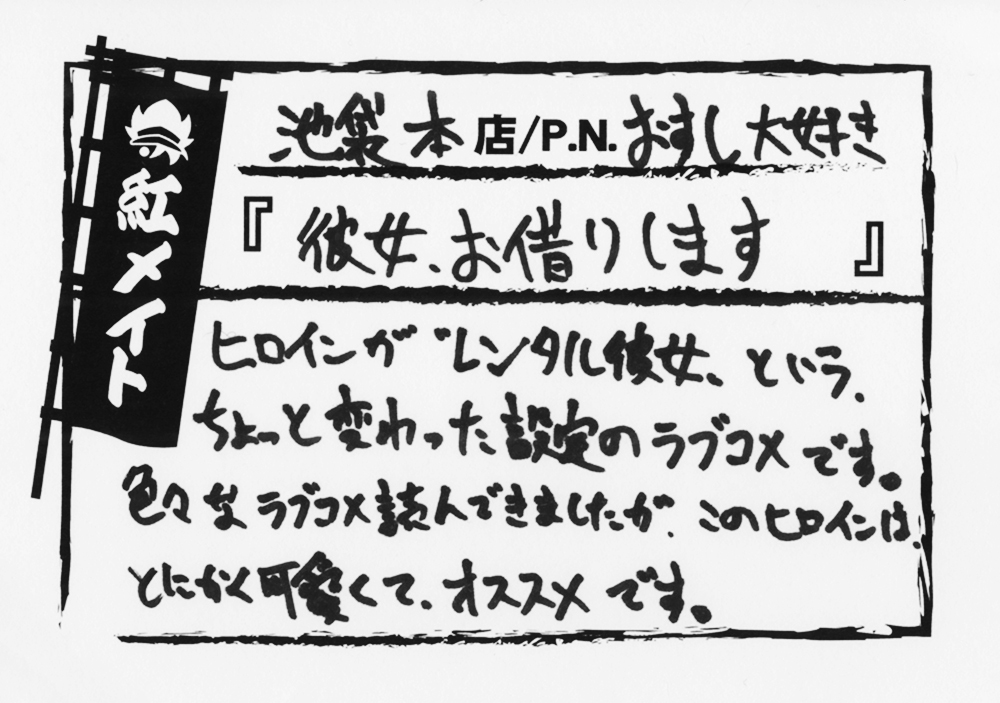 紅メイト
池袋本店/P.N.おすし大好き
『彼女、お借りします』
ヒロインが〝レンタル彼女〟という、
ちょっと変わった設定のラブコメです。
色々なラブコメ読んできましたが、このヒロインは、
とにかく可愛くて、オススメです。